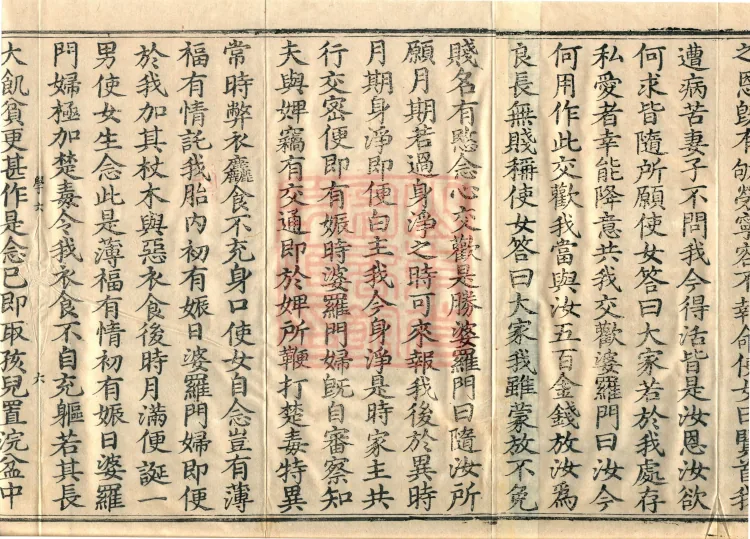 之恩既有
遭病苦妻子不問我今得活皆是汝恩汝欲
何求皆隨所願使女答曰大家若於我處存
私愛者幸能降意共我交歡婆羅門曰汝今
何用作此交歡我當與汝五百金錢放汝為
良長無賤稱使女答曰大家我雖蒙放不免
賤名有愍念心交歡是勝婆羅門曰隨汝所
願月期若過身淨之時可來報我後於異時
月期身淨即便白主我今身淨是時家主共
行交密便即有娠時婆羅門婦既自審察知
夫與婢竊有交通即於婢所鞭打楚毒特異
常時弊衣麤食不充身口使女自念豈有薄
福有情託我胎內初有娠日婆羅門婦即便
於我加其杖木與惡衣食後時月滿便誕一
男使女生念此是薄福有情初有娠日婆羅
門婦極加楚毒令我衣食不自充軀若其長
學六 六
大飢貧更甚作是念已即取孩兒置浣盆中